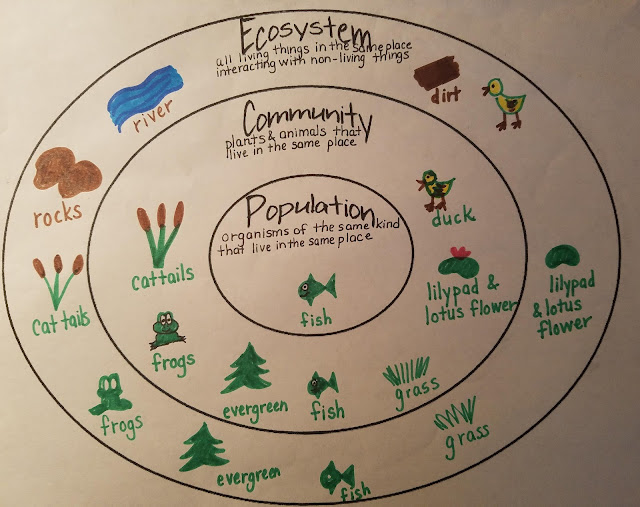 Ecosystem
all living things in the same place
interacting with non-living things
river
dirt
Community
plants & animals that
live in the same place
rocks
Population
organisms of the same kind
that live in the same place
duck
cattails
cattails
fish
lilypad &
lotus flower
lilypad
& lotus
flower
frogs
evergreen
fish
grass
frogs
evergreen
fish
grass